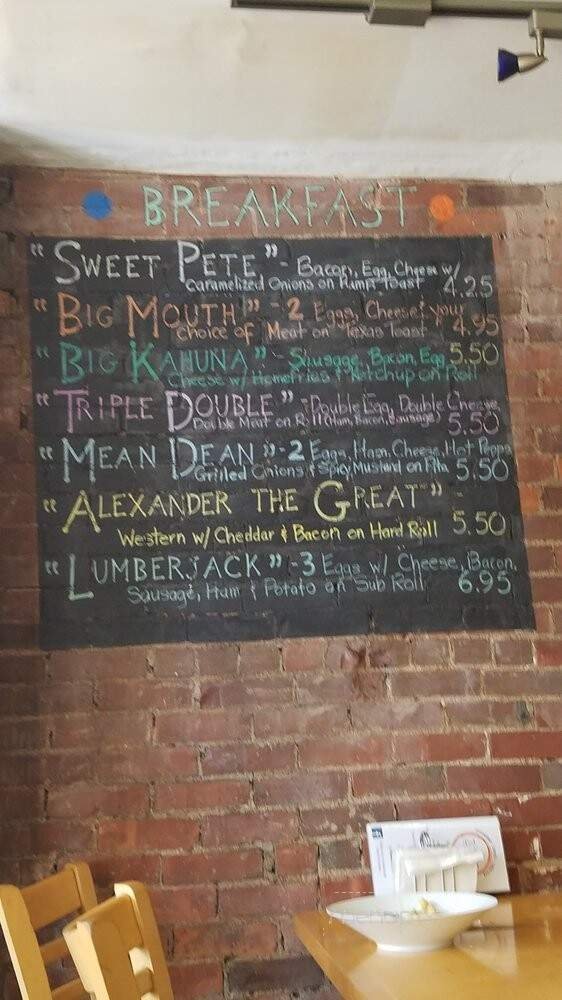 BREAKFAST
"SWEET PETE" - Bacon, Egg, Cheese w/
Caramelized Onions on Pump Toast 4.25
"BIG MOUTH" - 2 Eggs, Cheese & your
choice of Meat on Texas Toast 4.95
"BIG KAHUNA" - Sausage, Bacon, Egg 5.50
Cheese w/ Homefries & Ketchup on Roll
"TRIPLE DOUBLE" - Double Egg, Double Cheese
Double Meat on Roll (Ham, Bacon, Sausage) 5.50
"MEAN DEAN" - 2 Eggs, Ham, Cheese, Hot Pepps
Grilled Onions & Spicy Mustard on Pita 5.50
"ALEXANDER THE GREAT" -
Western w/ Cheddar & Bacon on Hard Roll 5.50
"LUMBERJACK" - 3 Eggs w/ Cheese, Bacon,
Sausage, Ham & Potato on Sub Roll 6.95